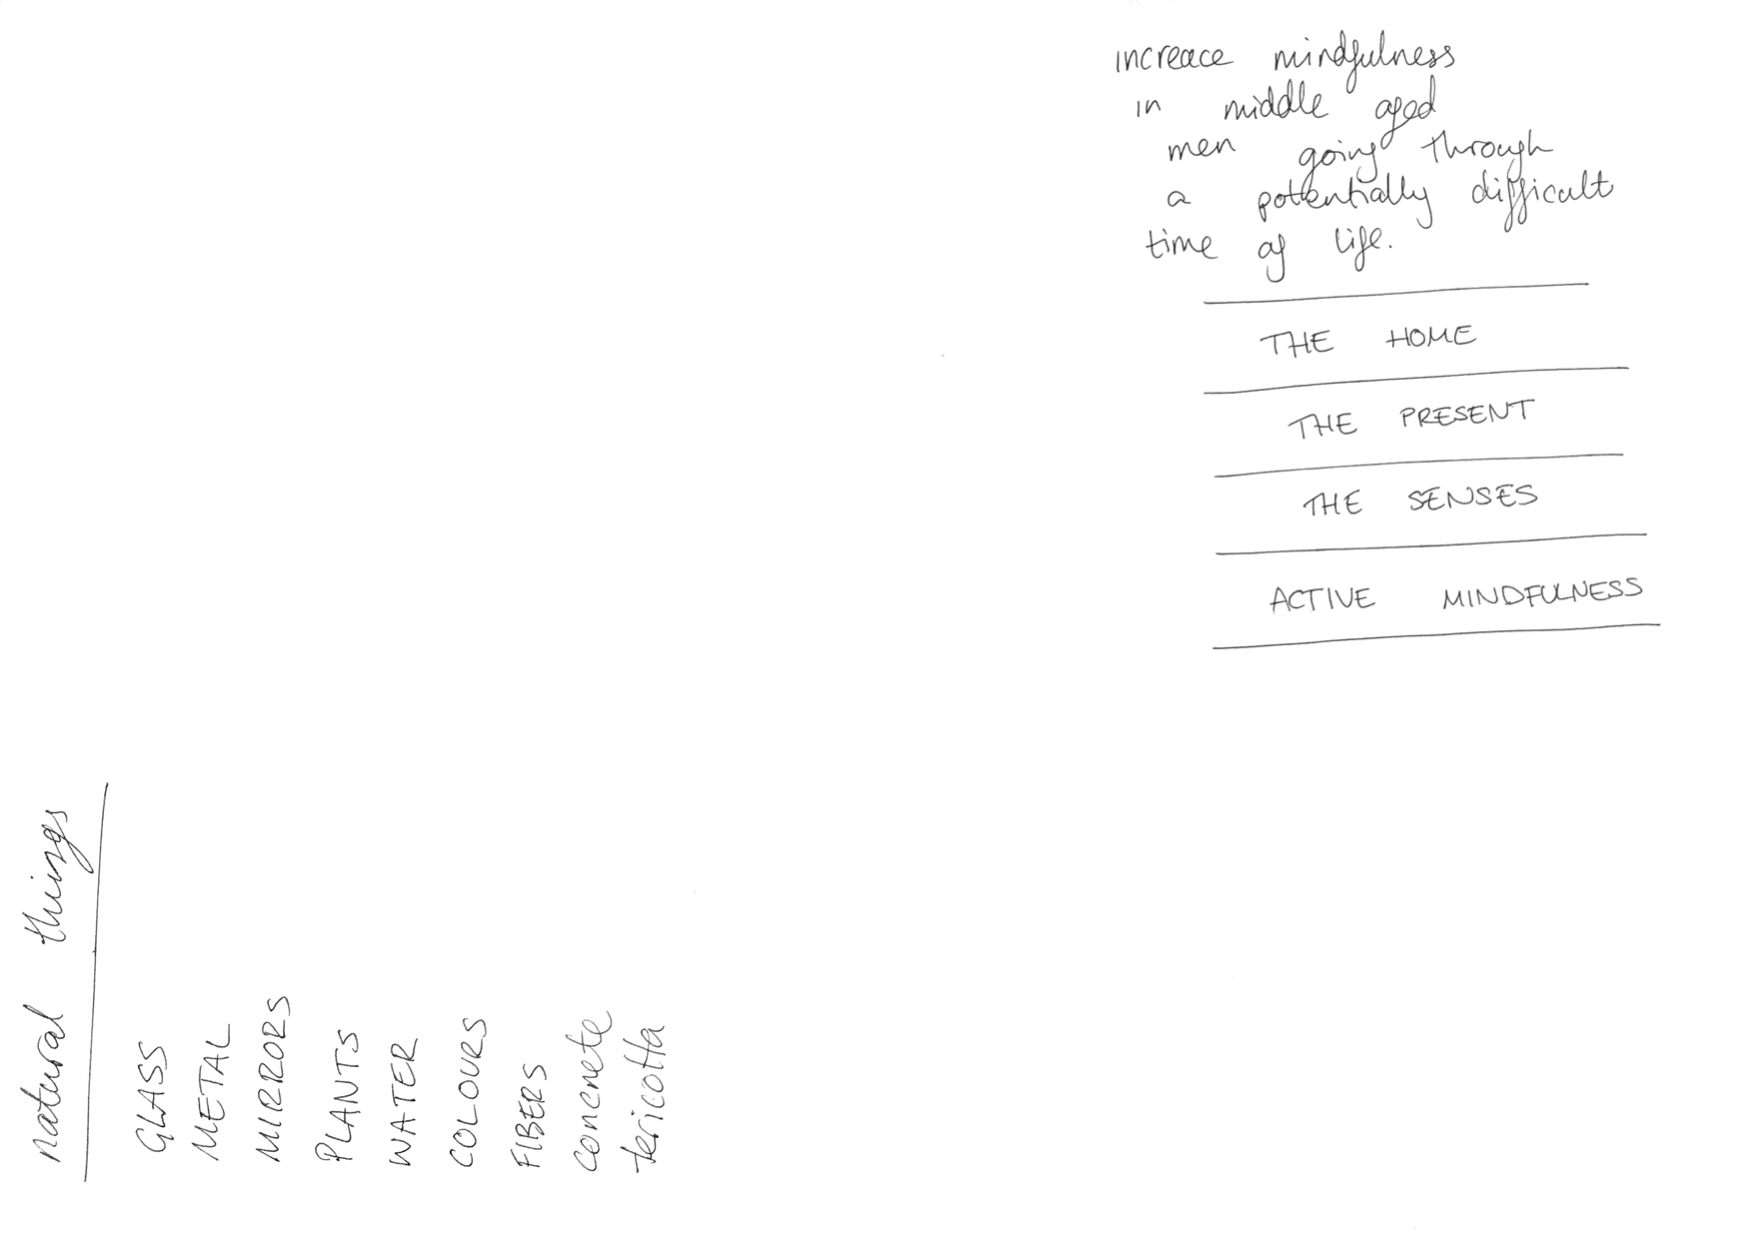 increace mindfulness
in middle aged
men going through
a potentially difficult
time of life.
THE HOME
THE PRESENT
THE SENSES
ACTIVE MINDFULNESS
natural things
GLASS
METAL
MIRRORS
PLANTS
WATER
COLOURS
FIBERS
concrete
tericotta